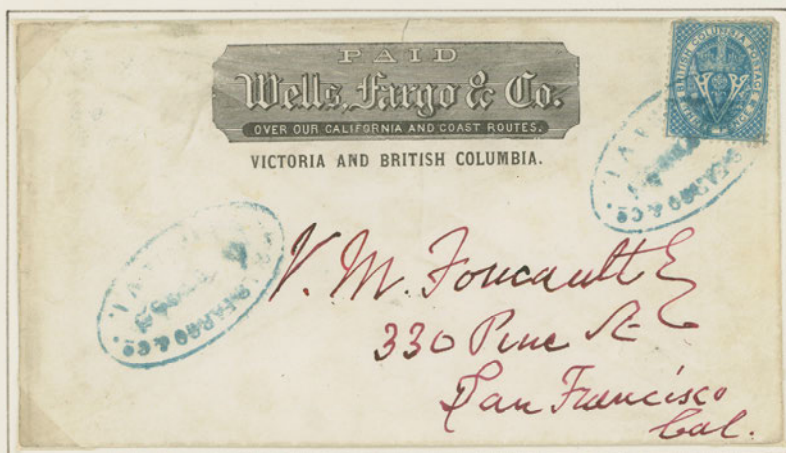 PAID
Wells, Fargo & Co.
OVER OUR CALIFORNIA AND COAST ROUTES.
VICTORIA AND BRITISH COLUMBIA.
BRITISH COLUMBIA POSTAGE
V
FARGO & Co.
FARGO & Co.
V. M. Foucault E
330 Pine St
San Francisco
Cal.